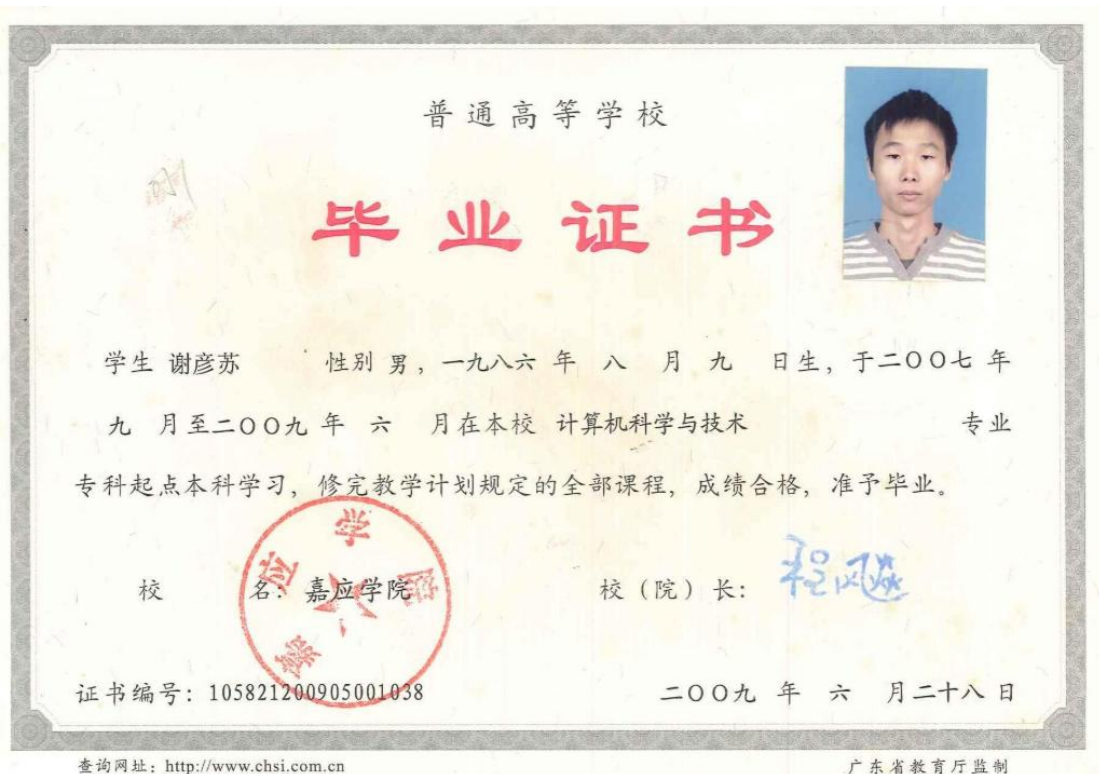 普通高等学校
毕业证书
学生 谢彦苏 性别 男，一九八六 年 八 月 九 日生，于二〇〇七 年
九 月至二〇〇九 年 六 月在本校 计算机科学与技术 专业
专科起点本科学习，修完教学计划规定的全部课程，成绩合格，准予毕业。
校 名：嘉应学院 校（院）长：
嘉应学院
证书编号：105821200905001038 二〇〇九 年 六 月二十八 日
查询网址：http://www.chsi.com.cn 广东省教育厅监制